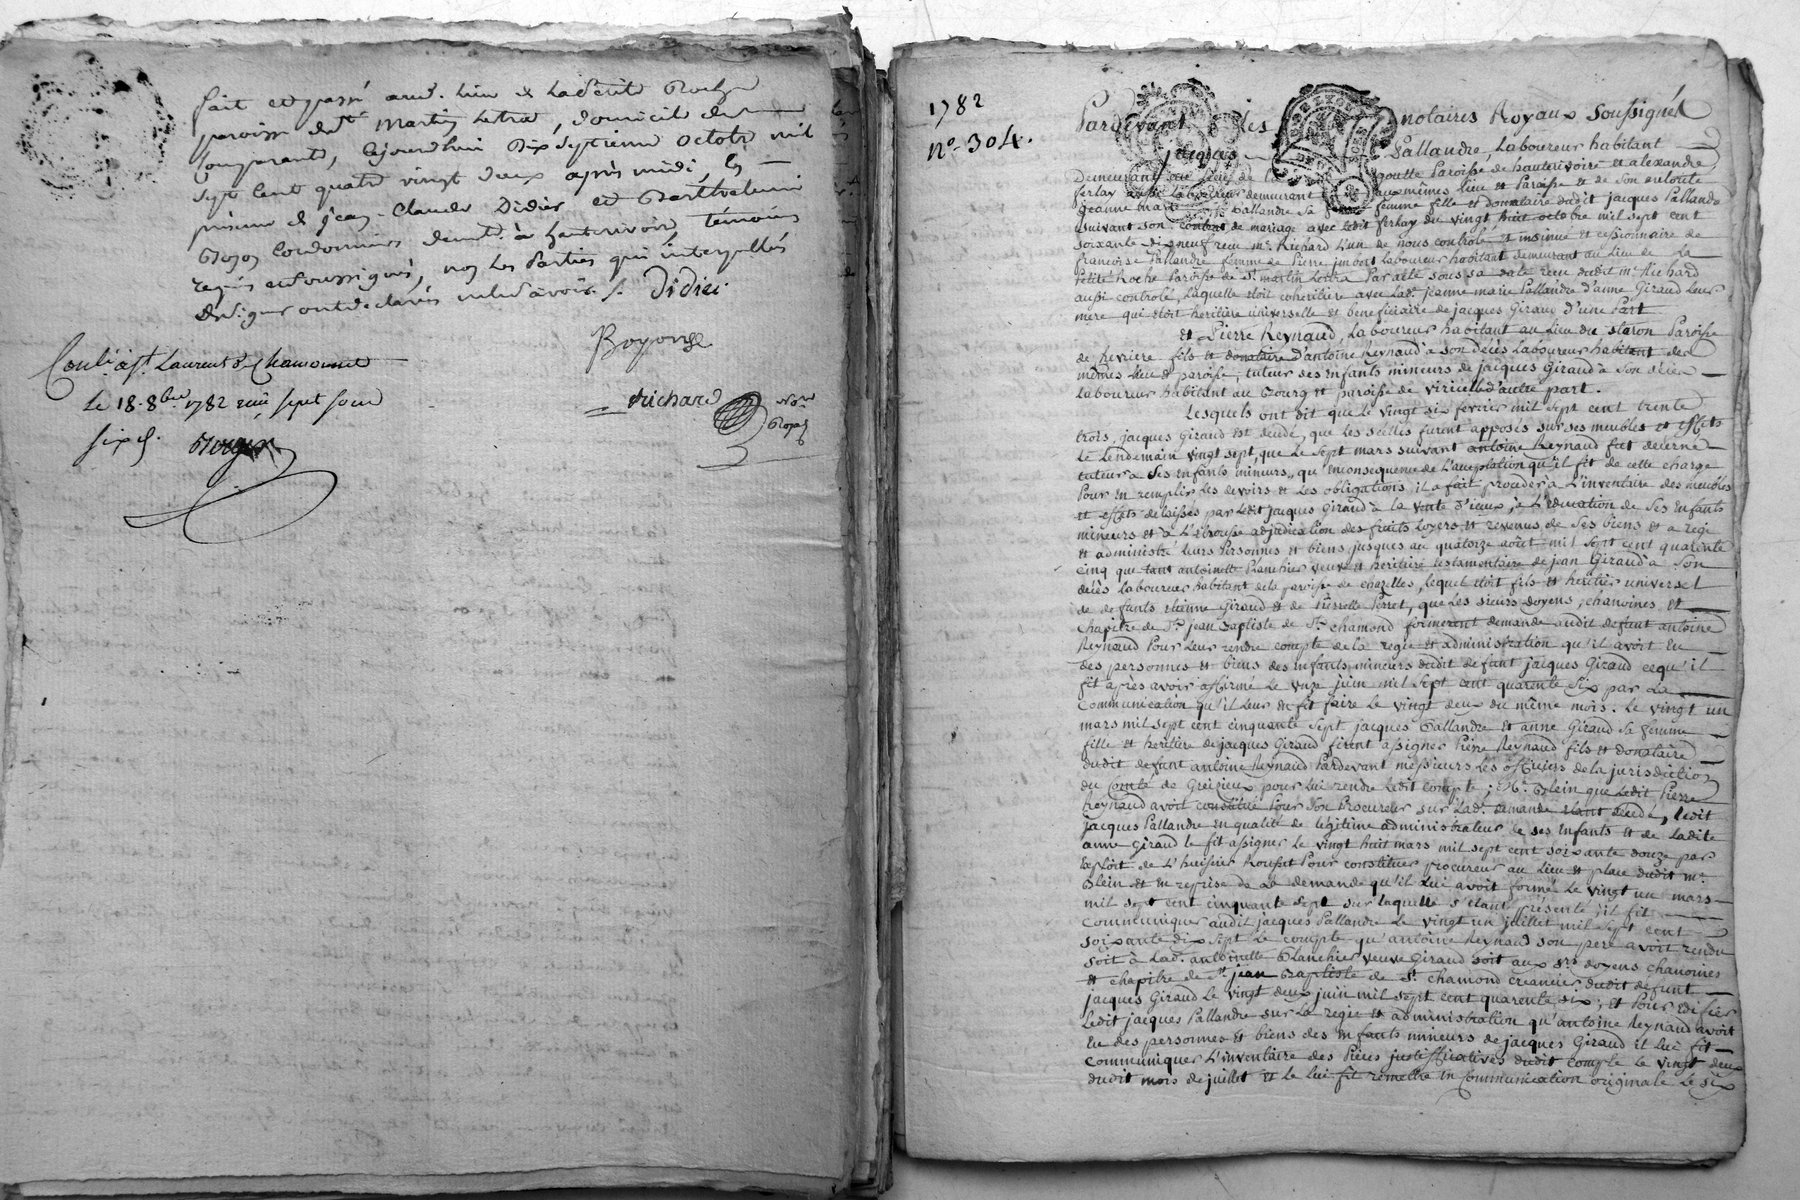 fait et passé aud. lieu de La Petite Roche
paroisse de St Martin Letra, domicile de
Comparants, Cejourdhui Dix Septieme Octobre mil
Sept Cent quatre vingt deux après midi, En
présence de jean-Claude Didier et Barthelemi
Cordonniers demt. à hauterivoire, témoins
requis et soussignés, non Les Parties qui interpellés
de signer ont declarés ne le sçavoir /. Didiei
Richard No.re Royal
Conl. à St. Laurent d. Chamousset
Le 18. 8bre 1782 reçu sept sous
six d.
1782
n°. 304.
Pardevant Les notaires Royaux Soussignés
jacques Pallandre, Laboureur habitant
Demeurant au Lieu de La goutte Paroisse de hauterivoire et alexandre
ferlay aussi Laboureur demeurant aux mêmes Lieu et Paroisse et de Son autorité
jeanne marie Pallandre Sa femme fille et donataire dudit jacques Pallandre
suivant son contrat de mariage avec Ledit ferlay du vingt huit octobre mil sept cent
soixante dix neuf reçu me. Richard L'un de nous controlé et insinué et cessionnaire de
francoise Pallandre femme de Pierre Laboureur habitant demeurant au Lieu de La
Petite Roche Paroisse de St. martin Letra Par acte sous sa date reçu dudit me. Richard
aussi controlé, Laquelle étoit coheritiere avec Lade. jeanne marie Pallandre d'anne Giraud Leur
mere qui étoit heritiere universelle et beneficiaire de jacques Giraud d'une Part
et Pierre Reynaud, Laboureur habitant au Lieu du Paroisse
de fils et donataire d'antoine Reynaud à son décès Laboureur habitant des
mêmes Lieu et paroisse, tuteur des enfants mineurs de jacques Giraud à Son décès
Laboureur habitant au Bourg et paroisse de viricelle d'autre part.
Lesquels ont dit que Le vingt six fevrier mil sept cent trente
trois, jacques Giraud est decedé, que les scellés furent apposés sur ses meubles et effets
Le Lendemain vingt sept, que Le sept mars suivant antoine Reynaud fut decerné
tuteur à Ses enfants mineurs, qu'en consequence de L'acceptation qu'il fit de cette charge
Pour en remplir Les devoirs et Les obligations, il a fait proceder à L'inventaire des meubles
et effets delaissés par Ledit jacques Giraud à La vente d'iceux, à L'éducation de Ses Enfants
mineurs et à L'étrousse adjudication des fruits Loyers et revenus de Ses biens et a regi
et administré Leurs Personnes et biens, jusques au quatorze août mil sept cent quarente
cinq que tant antoinette Planchier veuve et heritiere testamentaire de jean Giraud à Son
décès Laboureur habitant de la paroisse de chazelles, Lequel étoit fils et heritier universel
de defunts etienne Giraud et de Pierrette Perret, que Les sieurs doyens, chanoines et
chapitre de St. jean Baptiste de St. chamond formerent demande audit defunt antoine
Reynaud Pour Leur rendre compte de La regie et administration qu'il avoit Eu
des personnes et biens des enfants mineurs dudit defunt jacques Giraud ce qu'il
fit après avoir affirmé Le onze juin mil sept cent quarente six par La
communication qu'il Leur en fit faire Le vingt deux du même mois. Le vingt un
mars mil sept cent cinquante sept jacques Pallandre et anne Giraud Sa femme
fille et heritiere de jacques Giraud firent assigner Pierre Reynaud fils et donataire
dudit defunt antoine Reynaud Pardevant messieurs Les officiers de la jurisdiction
du Comté de Greizieux pour Lui rendre Ledit compte; Me. Blein que Ledit Pierre
Reynaud avoit constitué Pour Son Procureur sur Lade. demande étant decedé, Ledit
jacques Pallandre en qualité de legitime administrateur de ses Enfants et de Ladite
anne Giraud Le fit assigner Le vingt huit mars mil sept cent soixante douze par
Exploit de L'huissier Rousset Pour constituer procureur au Lieu et place dudit me.
Blein et en reprise de La demande qu'il Lui avoit formé Le vingt un mars
mil sept cent cinquante sept sur laquelle s'étant présenté, il fit
communiquer audit jacques Pallandre Le vingt un juillet mil sept cent
soixante dix sept Le compte qu'antoine Reynaud son pere avoit rendu
soit à Lade. antoinette Planchier veuve Giraud soit aux Srs. doyens chanoines
et chapitre de St. jean Baptiste de St. chamond creancier dudit defunt
jacques Giraud Le vingt deux juin mil sept cent quarente six; et Pour Edifier
Ledit jacques Pallandre sur La regie et administration qu'antoine Reynaud avoit
Eu des personnes et biens des enfants mineurs de jacques Giraud il Lui fit
communiquer L'inventaire des Pieces justifficatives dudit compte Le vingt deux
dudit mois de juillet et Le lui fit remettre en Communication originale Le six